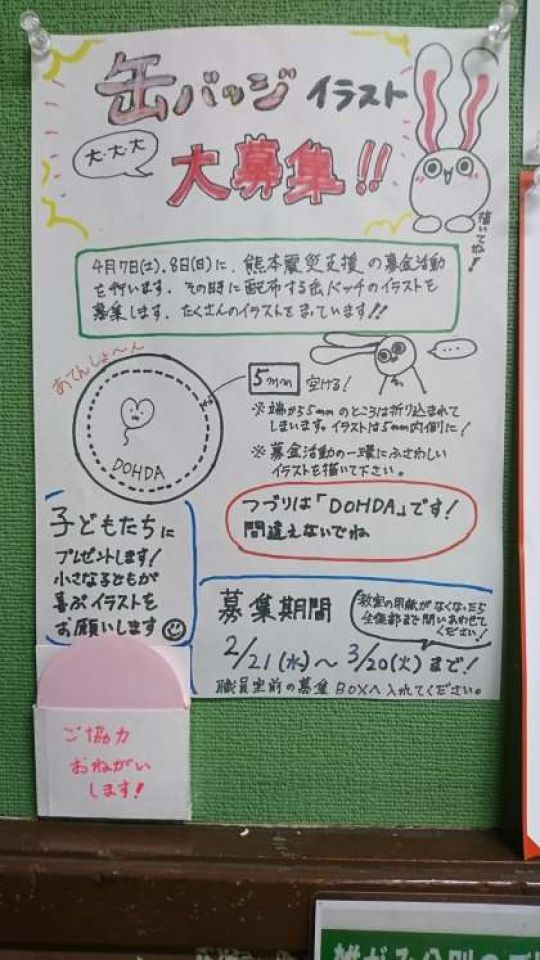 缶バッジ イラスト
大・大・大
大募集!!
描いてね!
4月7日(土).8日(日)に、熊本震災支援の募金活動
を行います。その時に配布する缶バッチのイラストを
募集します。たくさんのイラストをまっています!!
あてんしょ〜ん
5mm 空ける!
...
※端から5mmのところは折り込まれて
しまいます。イラストは5mm内側に!
※募金活動の一環にふさわしい
イラストを描いて下さい。
DOHDA
つづりは「DOHDA」です!
間違えないでね
子どもたちに
プレゼントします!
小さな子どもが
喜ぶイラストを
お願いします
募集期間
教室の用紙がなくなったら
生徒部まで問いあわせて
ください!
2/21(水)〜3/20(火)まで!
職員室前の募集BOXへ入れてください。
ご協力
おねがい
します!